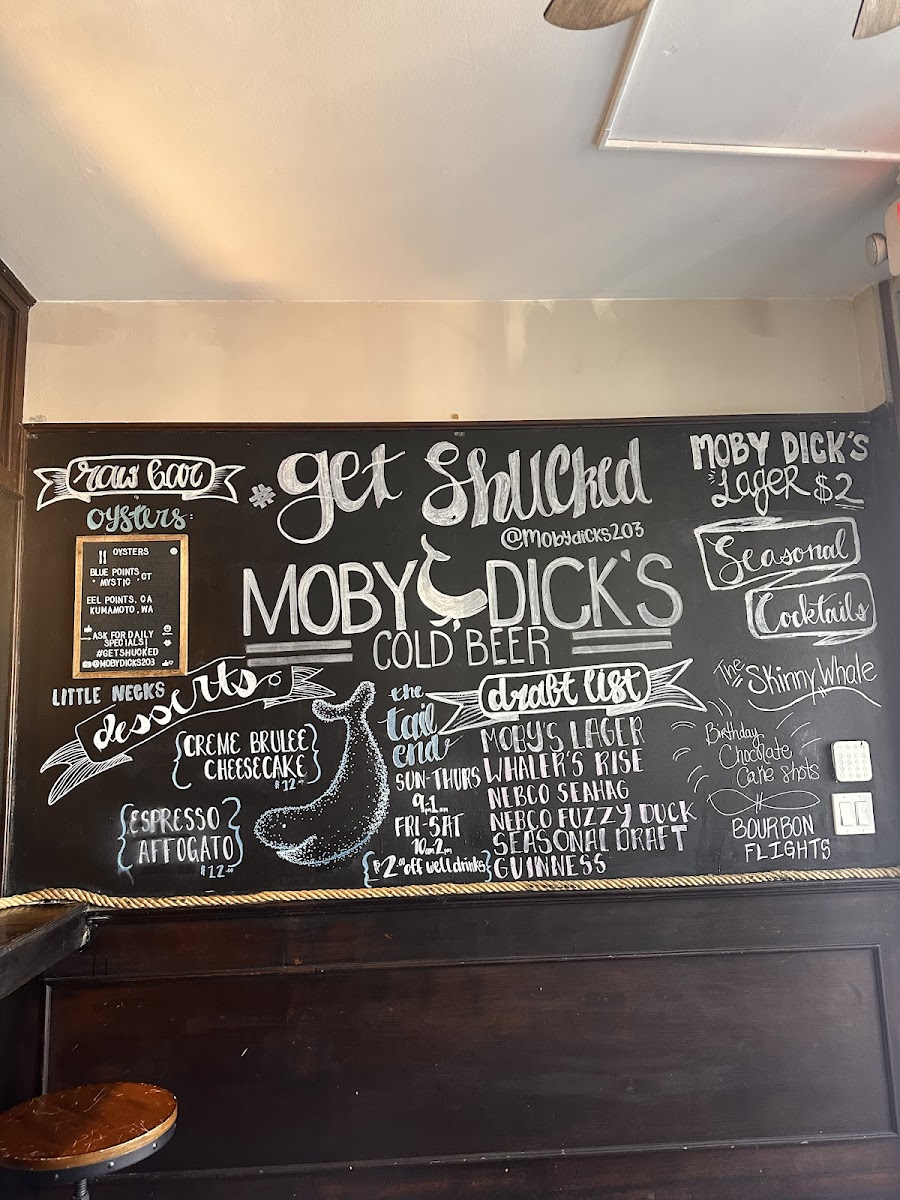 raw bar
oysters:
OYSTERS
BLUE POINTS,
MYSTIC CT
EEL POINTS, CA
KUMAMOTO, WA
ASK FOR DAILY
SPECIALS!
#GETSHUCKED
@MOBYDICKS203
LITTLE NECKS
desserts
CREME BRULEE
CHEESECAKE
$12.00
ESPRESSO
AFFOGATO
$12.00
#get Shucked
@Mobydicks203
MOBY DICK'S
COLD BEER
the
tail
end
SUN-THURS
9pm-1am
FRI-SAT
10pm-2am
$2.00 off well drinks
draft list
MOBY'S LAGER
WHALER'S RISE
NEBCO SEAHAG
NEBCO FUZZY DUCK
SEASONAL DRAFT
GUINNESS
MOBY DICK'S
Lager $2
Seasonal
Cocktails
The Skinny Whale
Birthday
Chocolate
Cake Shots
BOURBON
FLIGHTS